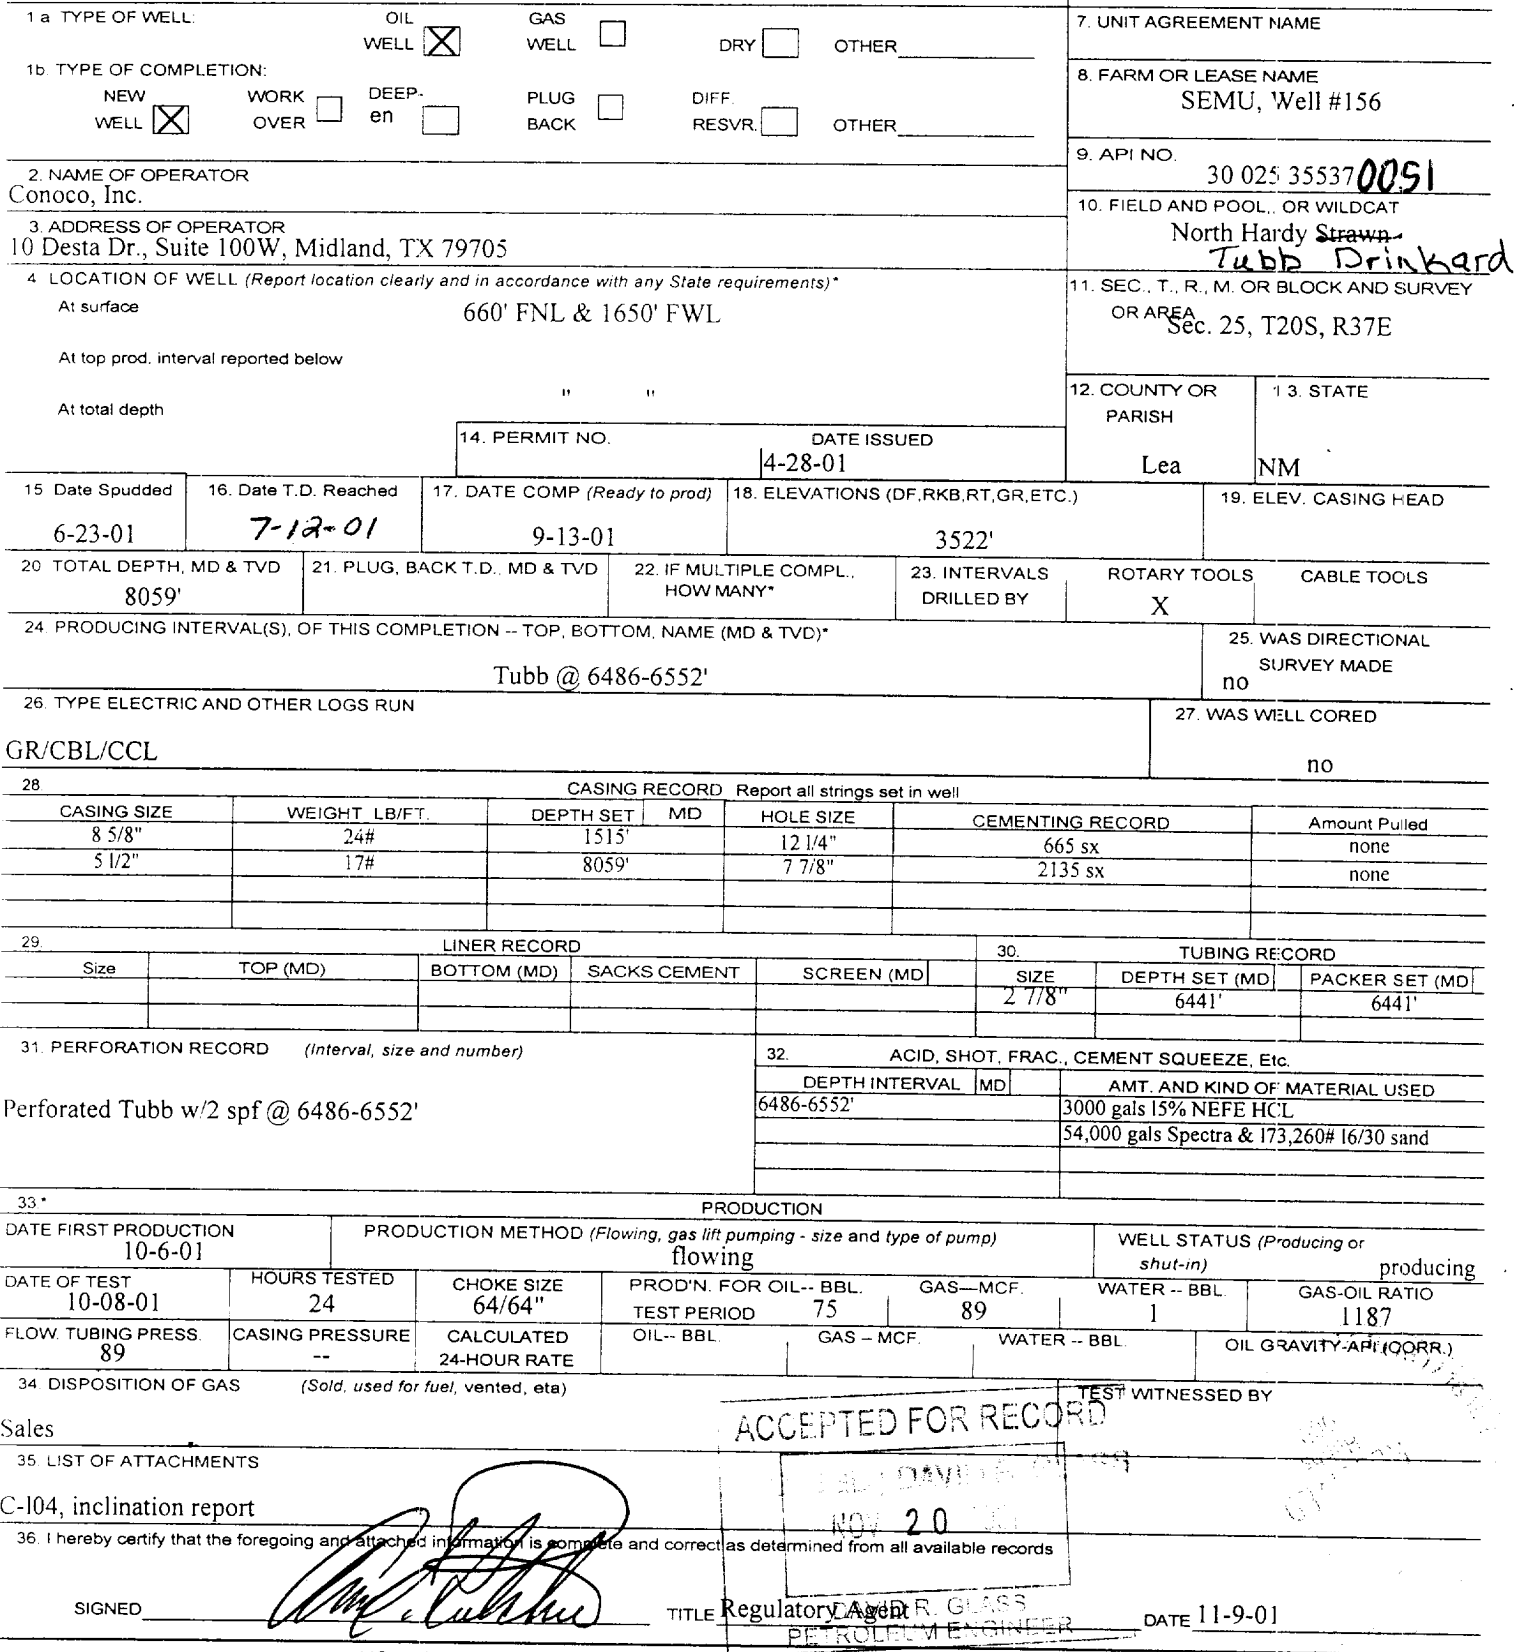 1 a TYPE OF WELL: OIL WELL X GAS WELL DRY OTHER
1b. TYPE OF COMPLETION:
NEW WELL X WORK OVER DEEP-en PLUG BACK DIFF. RESVR. OTHER
7. UNIT AGREEMENT NAME
8. FARM OR LEASE NAME
SEMU, Well #156
2. NAME OF OPERATOR
Conoco, Inc.
9. API NO.
30 025 35537 0051
3. ADDRESS OF OPERATOR
10 Desta Dr., Suite 100W, Midland, TX 79705
10. FIELD AND POOL,. OR WILDCAT
North Hardy Strawn
Tubb Drinkard
4 LOCATION OF WELL (Report location clearly and in accordance with any State requirements)*
At surface 660' FNL & 1650' FWL
At top prod. interval reported below
At total depth " "
11. SEC., T., R., M. OR BLOCK AND SURVEY
OR AREA
Sec. 25, T20S, R37E
12. COUNTY OR PARISH
Lea
13. STATE
NM
14. PERMIT NO. DATE ISSUED
4-28-01
15 Date Spudded 16. Date T.D. Reached 17. DATE COMP (Ready to prod) 18. ELEVATIONS (DF,RKB,RT,GR,ETC.) 19. ELEV. CASING HEAD
6-23-01 7-12-01 9-13-01 3522'
20 TOTAL DEPTH, MD & TVD 21. PLUG, BACK T.D., MD & TVD 22. IF MULTIPLE COMPL., HOW MANY* 23. INTERVALS DRILLED BY ROTARY TOOLS CABLE TOOLS
8059' X
24. PRODUCING INTERVAL(S), OF THIS COMPLETION -- TOP, BOTTOM, NAME (MD & TVD)*
Tubb @ 6486-6552'
25. WAS DIRECTIONAL SURVEY MADE
no
26. TYPE ELECTRIC AND OTHER LOGS RUN
GR/CBL/CCL
27. WAS WELL CORED
no
28. CASING RECORD Report all strings set in well
CASING SIZE WEIGHT LB/FT. DEPTH SET MD HOLE SIZE CEMENTING RECORD Amount Pulled
8 5/8" 24# 1515' 12 1/4" 665 sx none
5 1/2" 17# 8059' 7 7/8" 2135 sx none
29. LINER RECORD
Size TOP (MD) BOTTOM (MD) SACKS CEMENT SCREEN (MD
30. TUBING RECORD
SIZE DEPTH SET (MD PACKER SET (MD
2 7/8" 6441' 6441'
31. PERFORATION RECORD (Interval, size and number)
Perforated Tubb w/2 spf @ 6486-6552'
32. ACID, SHOT, FRAC., CEMENT SQUEEZE, Etc.
DEPTH INTERVAL MD AMT. AND KIND OF MATERIAL USED
6486-6552' 3000 gals 15% NEFE HCL
54,000 gals Spectra & 173,260# 16/30 sand
33 * PRODUCTION
DATE FIRST PRODUCTION PRODUCTION METHOD (Flowing, gas lift pumping - size and type of pump) WELL STATUS (Producing or shut-in)
10-6-01 flowing producing
DATE OF TEST HOURS TESTED CHOKE SIZE PROD'N. FOR TEST PERIOD OIL-- BBL. GAS—MCF. WATER -- BBL. GAS-OIL RATIO
10-08-01 24 64/64" 75 89 1 1187
FLOW. TUBING PRESS. CASING PRESSURE CALCULATED 24-HOUR RATE OIL-- BBL. GAS – MCF. WATER -- BBL. OIL GRAVITY-API (CORR.)
89 --
34. DISPOSITION OF GAS (Sold, used for fuel, vented, eta) TEST WITNESSED BY
Sales
ACCEPTED FOR RECORD
35. LIST OF ATTACHMENTS
C-104, inclination report
NOV 20
36. I hereby certify that the foregoing and attached information is complete and correct as determined from all available records
SIGNED TITLE Regulatory Agent DATE 11-9-01
DAVID R. GLASS
PETROLEUM ENGINEER